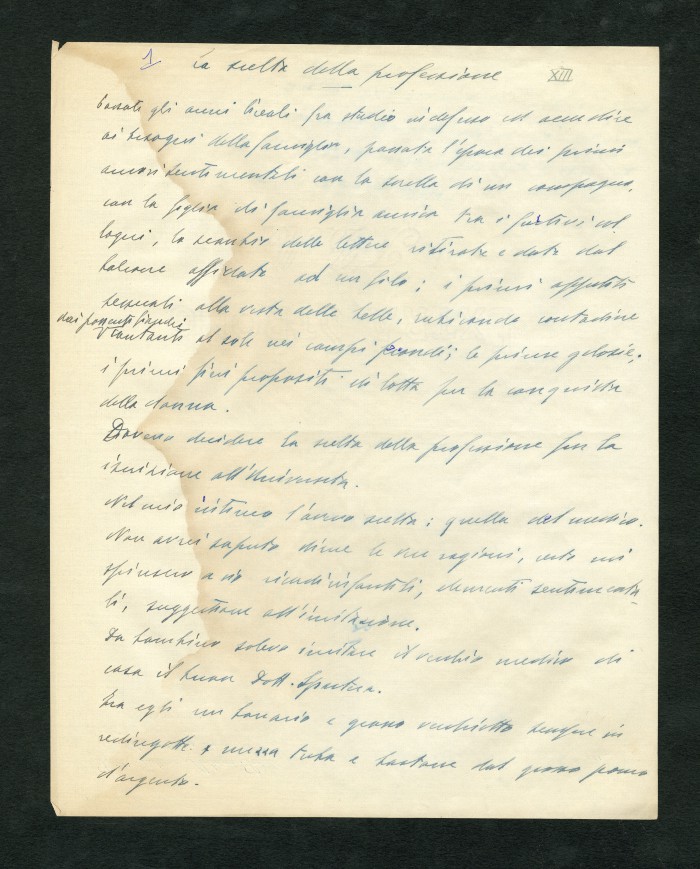 1 La scelta della professione XIII
Passati gli anni liceali fra studio indefesso ed accudire
ai bisogni della famiglia, passata l'epoca dei primi
amori sentimentali con la sorella di un compagno,
con la figlia di famiglia amica tra i furtivi col
loqui, lo scambio delle lettere ritirate e date dal
balcone affidate ad un filo; i primi appetiti
sessuali alla vista delle belle, rubiconde contadine
dai possenti fianchi
piantanti al sole nei campi fecondi; le prime gelosie,
i primi fieri propositi di lotta per la conquista
della donna.
Dovevo decidere la scelta della professione per la
iscrizione all'Università.
Nel mio intimo l'avevo scelta: quella del medico.
Non avrei saputo dirne le vere ragioni, certo mi
spinsero a ciò ricordi infantili, elementi sentimenta
li, suggestione all'imitazione.
Da bambino solevo imitare il vecchio medico di
casa il buon Dott.
Era egli un bonario e grosso vecchietto sempre in
redingotte e mezza tuba e bastone dal grosso pomo
d'argento.